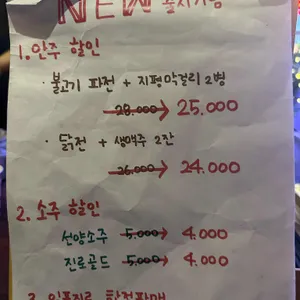 NEW
1. 안주 할인
· 불고기 파전 + 지평막걸리 2병
28.000 → 25.000
· 닭전 + 생맥주 2잔
26.000 → 24.000
2. 소주 할인
선양소주 5.000 → 4.000
진로골드 5.000 → 4.000